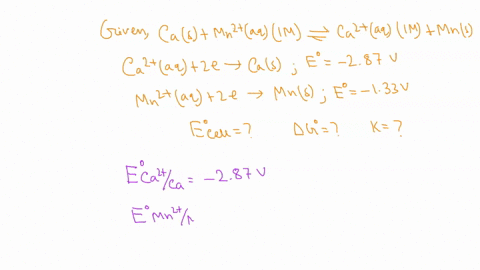 Given, Ca(s) + Mn²⁺(aq)(1M) ⇌ Ca²⁺(aq)(1M) + Mn(s)
Ca²⁺(aq) + 2e → Ca(s) ; E° = -2.87 V
Mn²⁺(aq) + 2e → Mn(s) ; E° = -1.33 V
E°cell = ? ΔG° = ? K = ?
E°Ca²⁺/Ca = -2.87 V
E°Mn²⁺/